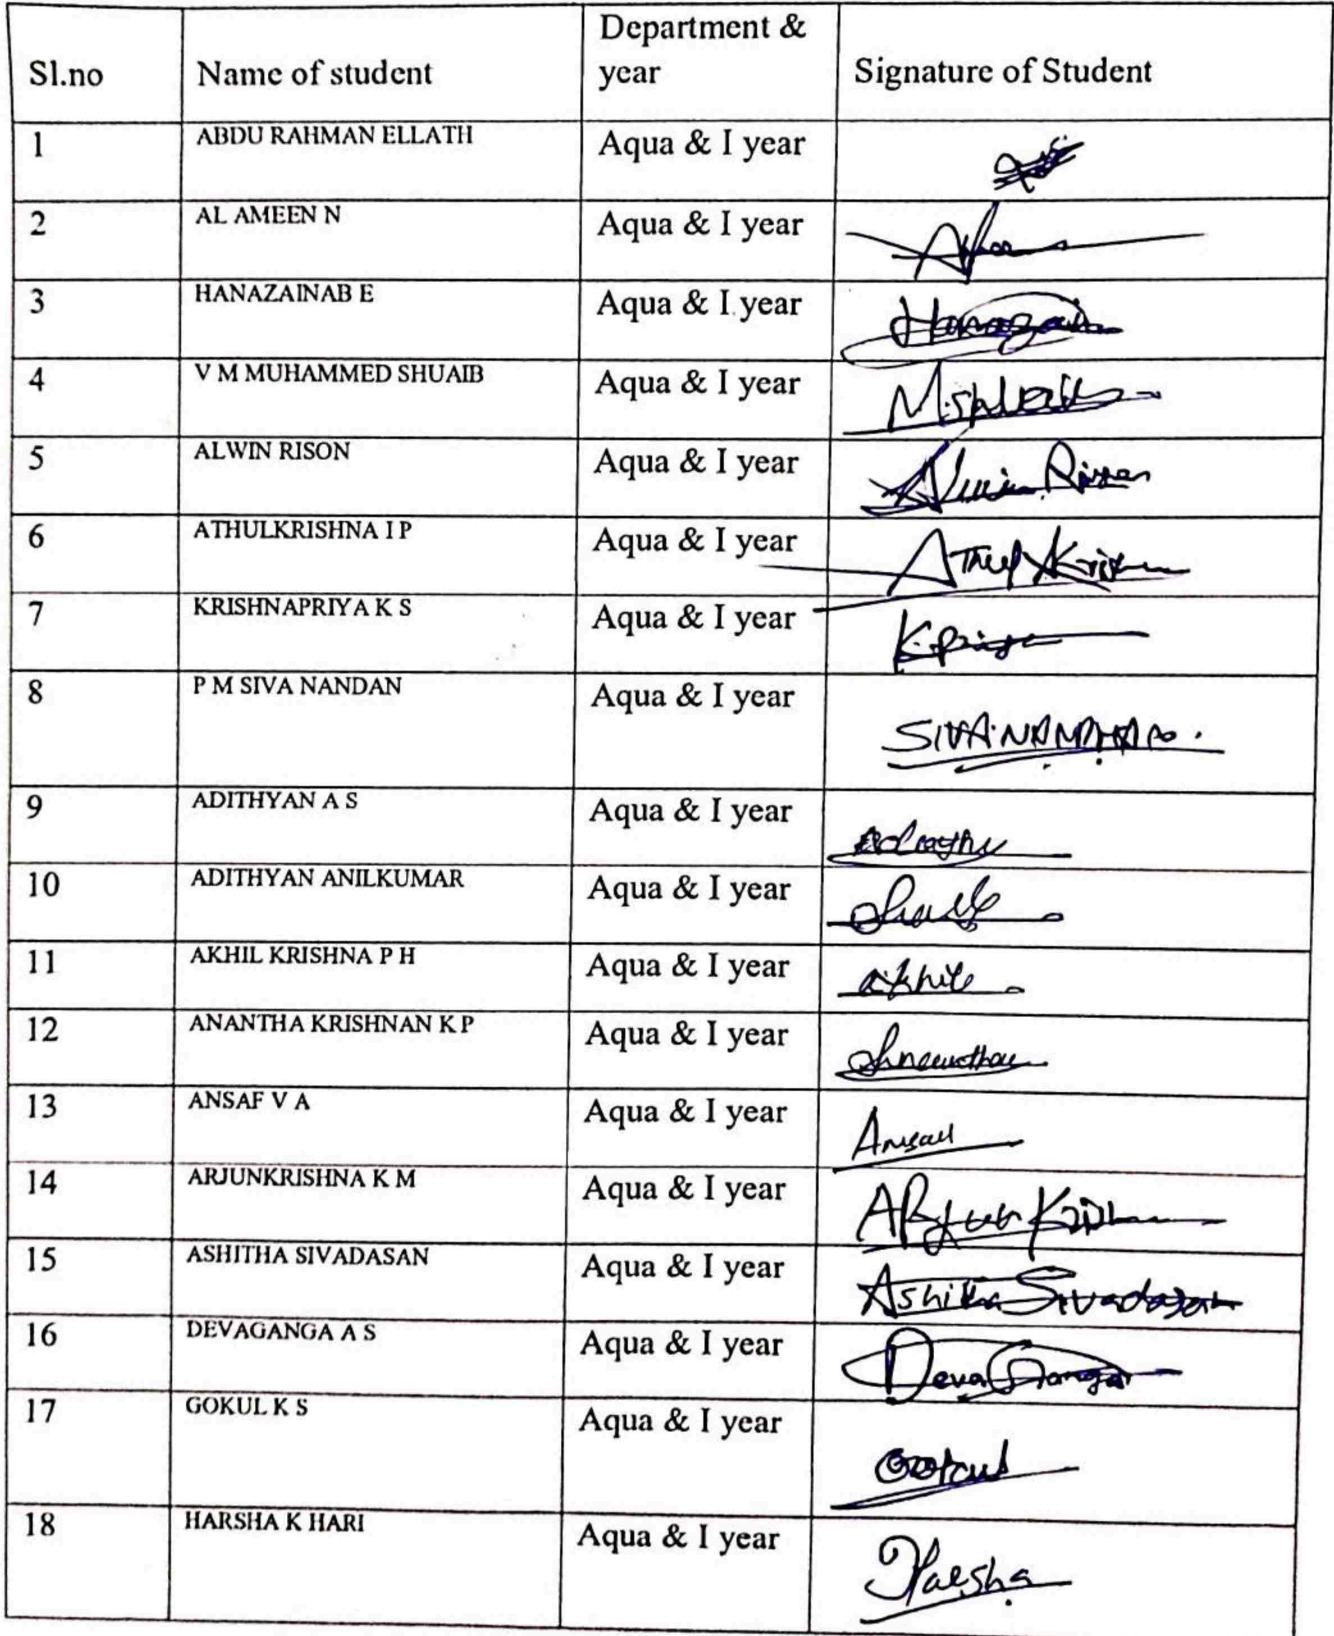 Sl.no Name of student Department & year Signature of Student
1 ABDU RAHMAN ELLATH Aqua & I year
2 AL AMEEN N Aqua & I year
3 HANAZAINAB E Aqua & I year Hanazain
4 V M MUHAMMED SHUAIB Aqua & I year
5 ALWIN RISON Aqua & I year Alwin Rison
6 ATHULKRISHNA I P Aqua & I year Athul Krishna
7 KRISHNAPRIYA K S Aqua & I year K.priya
8 P M SIVA NANDAN Aqua & I year
9 ADITHYAN A S Aqua & I year
10 ADITHYAN ANILKUMAR Aqua & I year
11 AKHIL KRISHNA P H Aqua & I year akhil
12 ANANTHA KRISHNAN K P Aqua & I year
13 ANSAF V A Aqua & I year
14 ARJUNKRISHNA K M Aqua & I year
15 ASHITHA SIVADASAN Aqua & I year Ashitha Sivadasan
16 DEVAGANGA A S Aqua & I year Deva Ganga
17 GOKUL K S Aqua & I year Gokul
18 HARSHA K HARI Aqua & I year Harsha